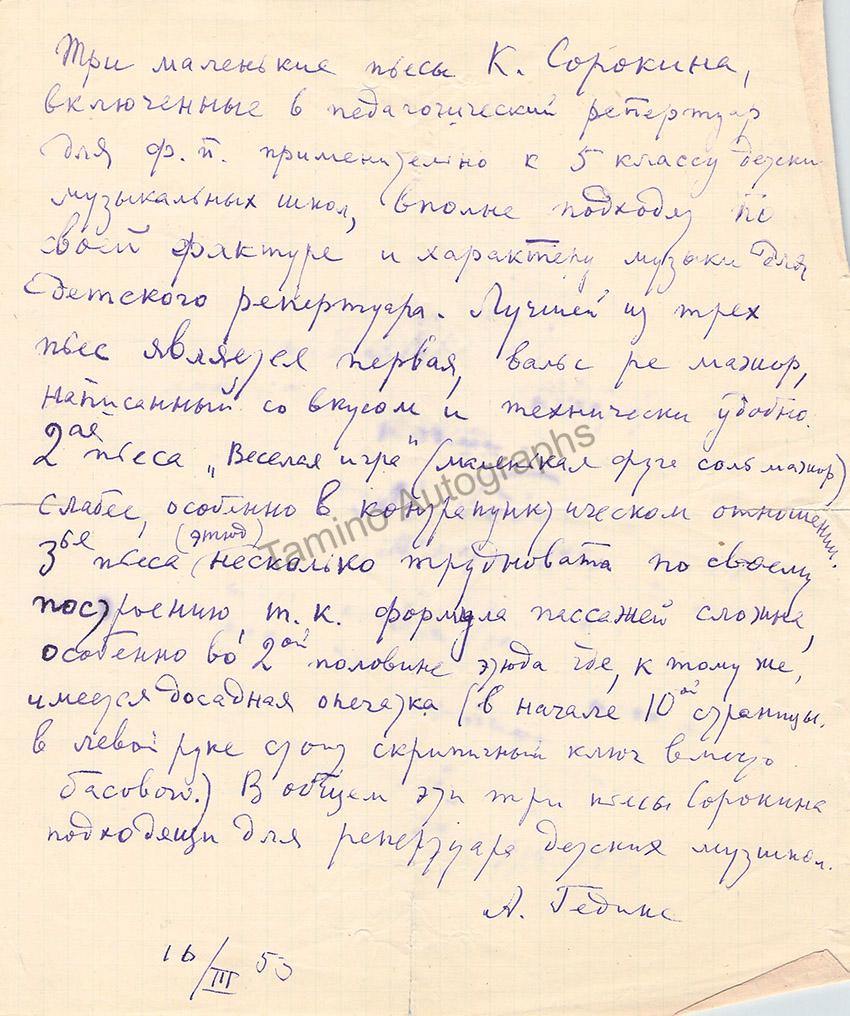 Три маленькие пьесы К. Сорокина,
включенные в педагогический репертуар
для ф.п. применительно к 5 классу детски
музыкальных школ, вполне подходят по
своей фактуре и характеру музыки для
детского репертуара. Лучшей из трех
пьес является первая, вальс ре мажор,
написанный со вкусом и технически удобно.
2ая пьеса „Веселая игра" (маленькая фуга соль мажор)
слабее, особенно в контрапунктическом отношении.
3ья пьеса (этюд) несколько трудновата по своему
построению, т.к. формула пассажей сложна,
особенно во 2ой половине этюда где, к тому же,
имеется досадная опечатка (в начале 10ой страницы,
в левой руке стоит скрипичный ключ вместо
басового.) В общем эти три пьесы Сорокина
подходящи для репертуара детских музшкол.
А. Гедике
16/III 53
Tamino Autographs